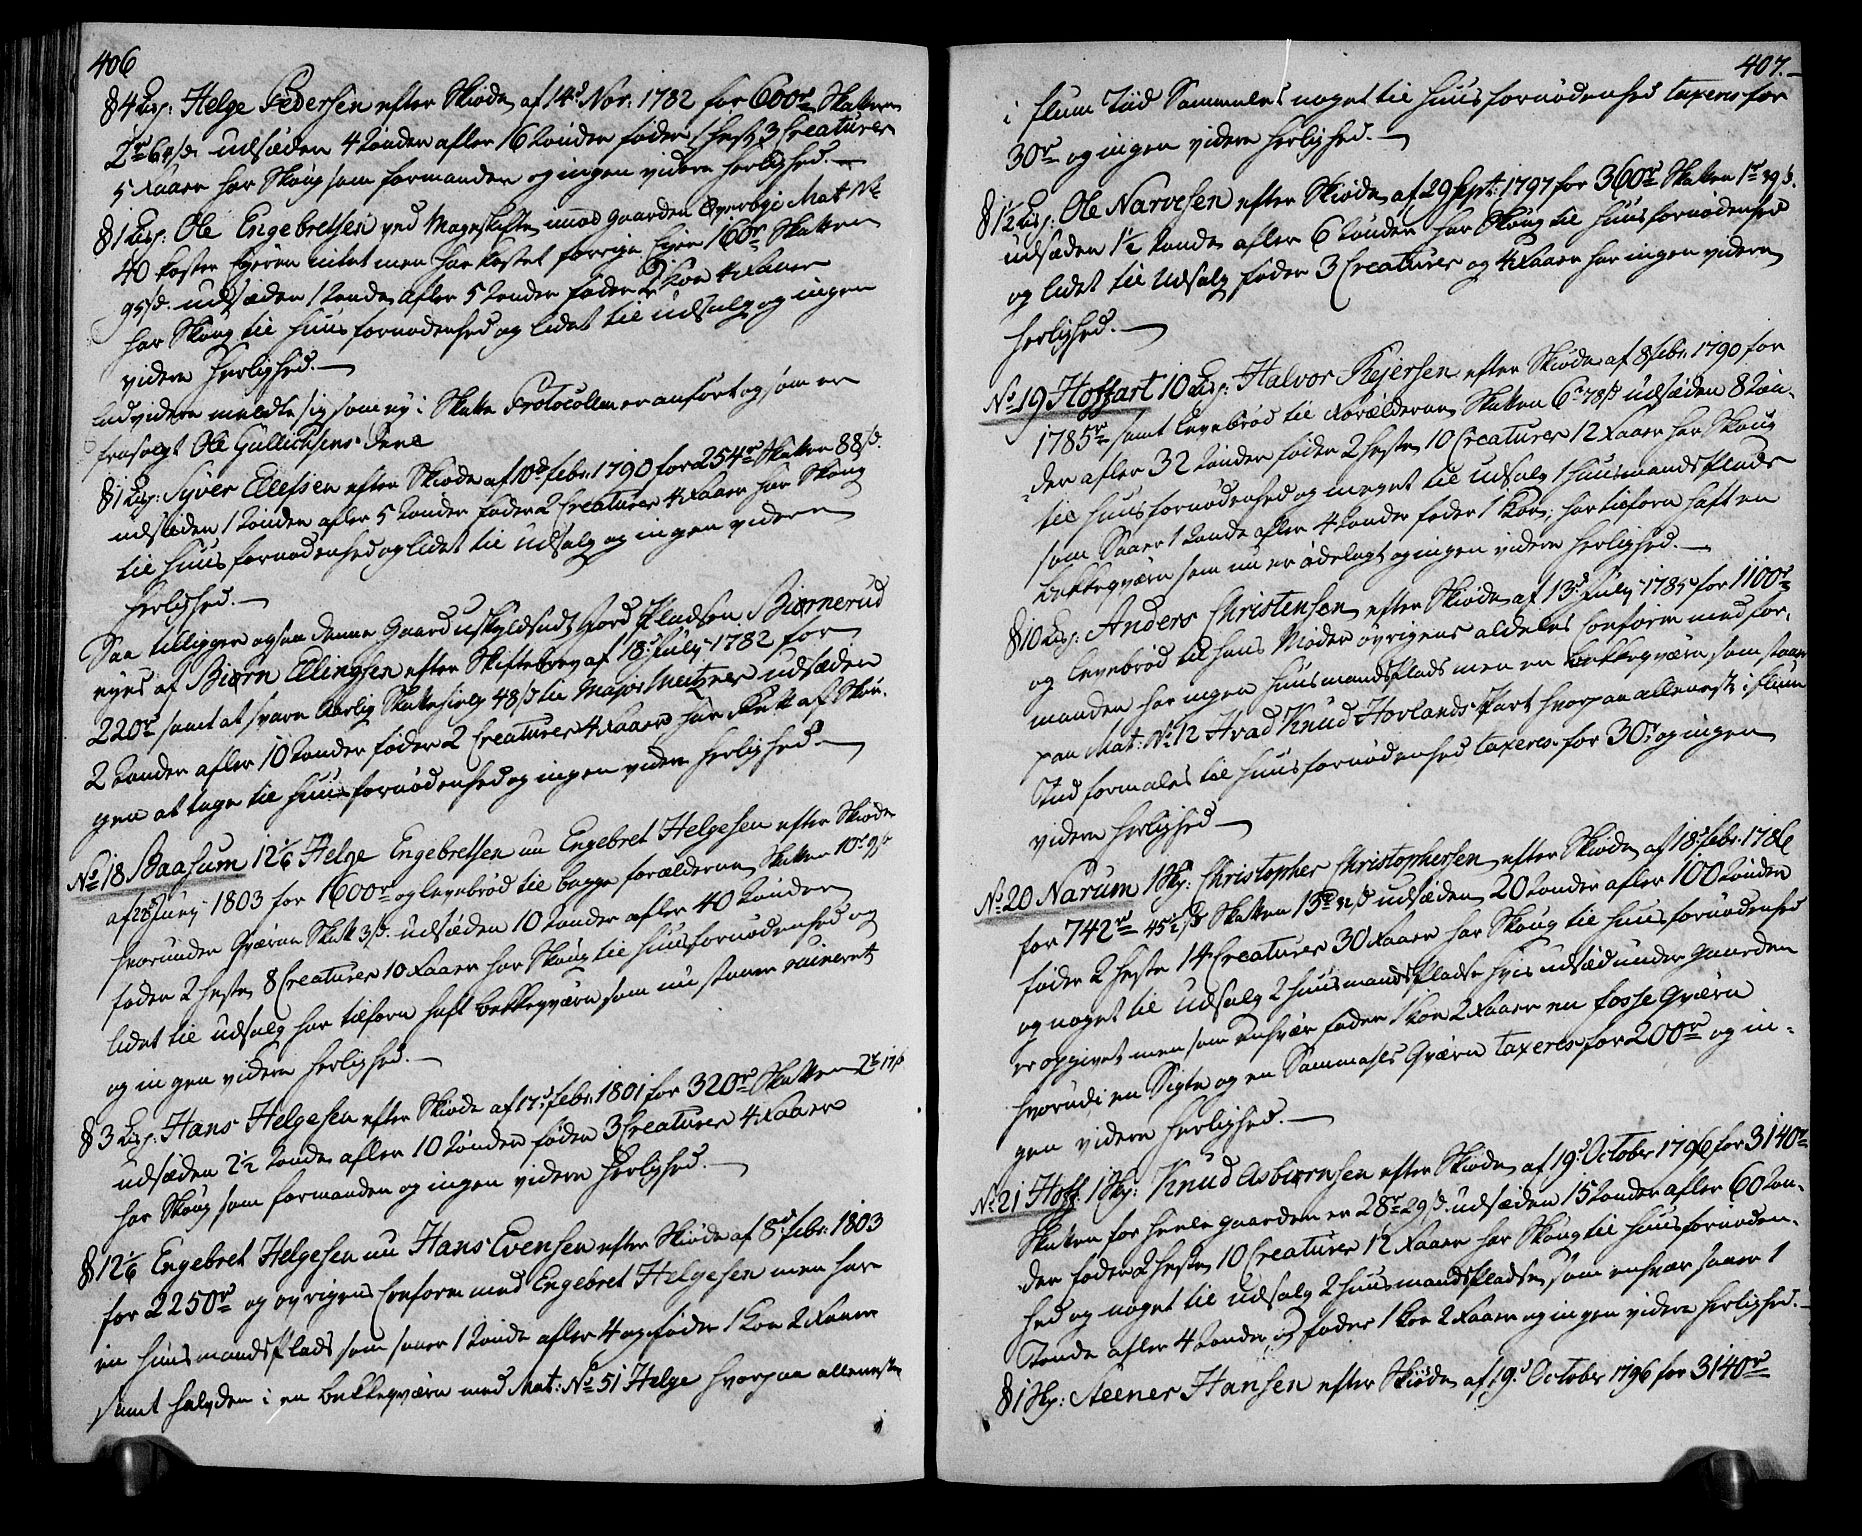 406
§ 4 Lisp: Helge Pedersen efter Skiøde af 14d Nov: 1782 for 600r Skatten
2r 64 s. udsæden 4 tønder afler 16 tønder føder 1 hest 3 Creaturer
5 Faaer har Skoug som formanden og ingen videre herlighed.
§ 1 Lisp: Ole Engebretsen ved Mageskifte imod gaarden Øverbye Mat No
40 koster Ejeren intet men har kostet forrige Ejer 160r Skatten
95 s. udsæden 1 tønde afler 5 tønder føder 2 Kiør 4 Faaer
har Skoug til huusfornødenhed og lidet til udsalg og ingen
videre Herlighed.
Endvidere meldte sig som ny i Skatte Protocollen er anført og som er
frasolgt Ole Gullichsens Deel
§ 1 Lisp: Syver Ellefsen efter Skiøde af 10d febr: 1790 for 254r Skatten 88 s.
udsæden 1 tønder afler 5 tønder føder 2 Creaturer 4 Faaer har Skoug
til huusfornødenhed og lidet til udsalg og ingen videre
herlighed.
Saa tilligger ogsaa denne Gaard uskyldsadt Jord Pladsen Biørnerud
eyes af Biørn Ellingsen efter Skiftebrev af 18d July 1782 for
220r samt at svare Aarlig Skattehielp 48 s til Major udsæden
2 tønder afler 10 tønder føder 2 Creaturer 4 Faaer har Rett af Skou-
gen at tage til huusfornødenhed og ingen videre herlighed.
No 18 Baasum 12 1/6 Helge Engebretsen nu Engebret Helgesen efter Skiøde
af 28 Juny 1803 for 1600r og Levebrød til begge forælderne Skatten 10r 9 s
hvorunder Qværne Skatt 3 s. udsæden 10 tønder afler 40 tønder
føder 2 heste 8 Creaturer 10 Faaer har Skoug til huusfornødenhed og
lidet til udsalg har tilforn haft bekkeqværn som nu staaer ruineret
og ingen videre herlighed.
§ 3 Lisp: Hans Helgesen efter Skiøde af 17d febr: 1801 for 320r Skatten 2r 17 s
udsæden 2 1/2 tønde afler 10 tønder føder 3 Creaturer 4 Faaer
har Skoug som formanden og ingen videre herlighed.
§ 12 1/6 Engebret Helgesen nu Hans Evensen efter Skiøde af 8d febr: 1803
for 2250r og øvrigens Conform med Engebret Helgesen men har
een huusmandsPlads som saaer 1 tønde afler 4 og føder 1 Koe 2 Faaer
samt halvden i en bekkeqværn med Mat: No 51 Helge hvorpaa alleneste
407.
i flum Tiid Sammeles noget til huusfornødenhed taxeres for
30r og ingen videre herlighed.
§ 1 1/2 Lisp: Ole Narvesen efter Skiøde af 29 Sept: 1797 for 360r Skatten 1r 39 s.
udsæden 1 1/2 tønde afler 6 tønder har Skoug til huusfornødenhed
og lidet til udsalg føder 3 Creaturer og 4 Faaer har ingen videre
herlighed.
No 19 Hoffart 10 Lisp: Halvor Rejersen efter Skiøde af 8 febr: 1790 for
1785r samt Levebrød til Forælderne Skatten 6r 78 s udsæden 8 tøn-
der afler 32 tønder føder 2 heste 10 Creaturer 12 Faaer har Skoug
til huusfornødenhed og meget til udsalg 1 huusmandsPlads
som Saaer 1 tønde afler 4 tønder føder 1 Koe, har tilforn haft en
bekkeqværn som nu er ødelagt og ingen videre herlighed.
§ 10 Lisp: Anders Christensen efter Skiøde af 13d July 1785 for 1100r
og Levebrød til hans Moder øvrigens aldeles Conform med for-
manden har ingen huusmandsPlads men en bekkeqværn som staaer
paa Mat: No 12 Hvad Knud Horlands Part hvorpaa alleneste i flum
Tiid formales til huusfornødenhed taxeres for 30r og ingen
videre herlighed.
No 20 Narum 1 Hp: Christopher Christophersen efter Skiøde af 18d febr: 1786
for 742r 45 1/2 s Skatten 13r 32 s udsæden 20 tønder afler 100 tønder
føder 2 heste 14 Creaturer 30 Faaer har Skoug til huusfornødenhed
og noget til udsalg 2 huusmandsPladse hvis udsæd under gaarden
er opgivet men som enhvær føder 1 Koe 2 Faaer en fosse Qværn
hvorudi en Sigte og en Sammales Qværn taxeres for 200r og in-
gen videre herlighed.
No 21 Hoff 1 Hp: Knud Asbiørnsen efter Skiøde af 19d October 1796 for 3140r
Skatten for heele gaarden er 28r 29 s. udsæden 15 tønder afler 60 tøn-
der føder 2 heste 10 Creaturer 12 Faaer har Skoug til huusfornøden-
hed og noget til udsalg 2 huusmandsPladse som enhvær saaer 1
Tønde afler 4 tønder og føder 1 Koe 2 Faaer og ingen videre herlighed.
§ 1 Hp: Steener Hansen efter Skiøde af 19d October 1796 for 3140r